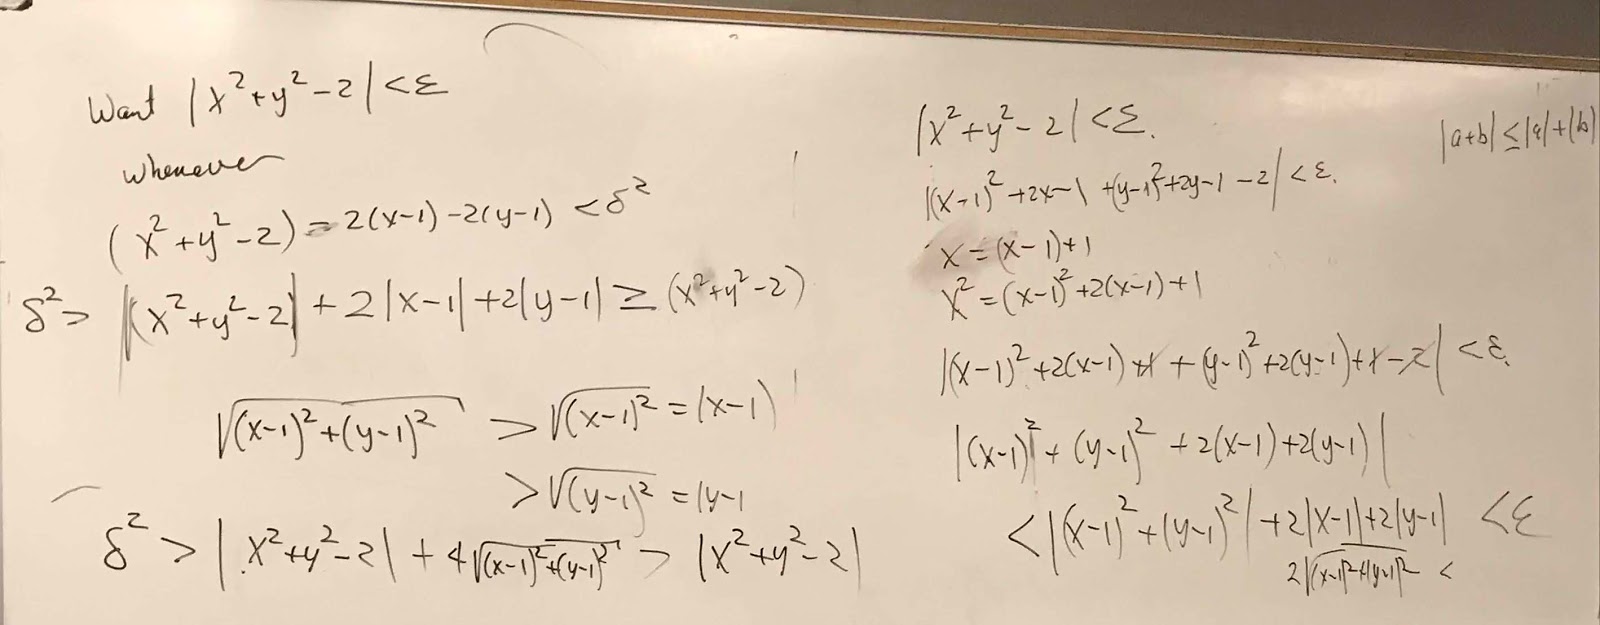 Want |x²+y²-2| < ε
whenever
(x²+y²-2) = 2(x-1) -2(y-1) < δ²
δ² > |(x²+y²-2)| + 2|x-1| +2|y-1| ≥ (x²+y²-2)
√(x-1)²+(y-1)² > √(x-1)² = |x-1)
> √(y-1)² = |y-1
δ² > |x²+y²-2| + 4√(x-1)²+(y-1)² > |x²+y²-2|
|x²+y²-2| < ε.
|(x-1)²+2x-1 +(y-1)²+2y-1 -2| < ε.
x = (x-1)+1
x² = (x-1)²+2(x-1)+1
|(x-1)²+2(x-1)+1 + (y-1)²+2(y-1)+1-2| < ε.
|(x-1)²+(y-1)² +2(x-1)+2(y-1)|
< |(x-1)²+(y-1)²| +2|x-1|+2|y-1| < ε
2√(x-1)²+(y-1)² <
|a+b| ≤ |a|+|b|